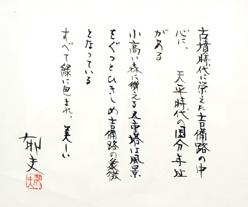 古墳時代に栄えた吉備路の中
心に、天平時代の国分寺址
がある
小高い森に構える五重塔は風景
をぐっとひきしめ吉備路の象徴
となっている
すべて緑に包まれ、美しい